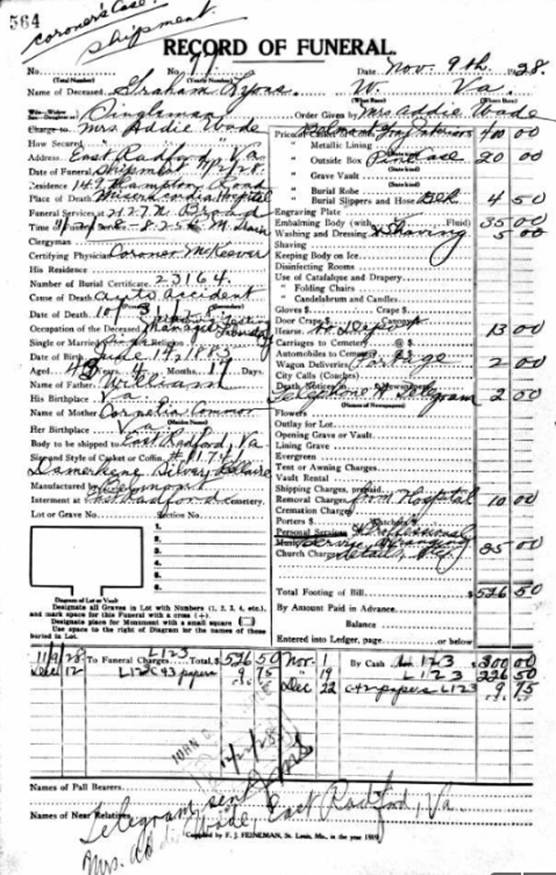 564
Coroner's Case.
Shipment.
RECORD OF FUNERAL.
No. No. 77 Date Nov. 9th, 1928.
(Total Number) (Yearly Number)
Name of Deceased Graham Lyons. W. Va.
(What Race) (Where Born)
Order Given by Mrs Addie Wade
Charge to Mrs Addie Wade
How Secured
Address East Radford, Va
Date of Funeral Shipment
Residence 149 Hampton Road
Place of Death Misericordia Hospital
Funeral Services at 2127 N. Broad
Time of
Clergyman
Certifying Physician Coroner McKeever
His Residence
Number of Burial Certificate 23164.
Cause of Death Auto Accident
Date of Death
Occupation of the Deceased Manager Laundry
Single or Married Single Religion
Date of Birth June 14, 1883
Aged Years, 4 Months, 17 Days.
Name of Father William
His Birthplace Va.
Name of Mother Cornelia Connor
(Maiden Name)
Her Birthplace Va
Body to be shipped to East Radford, Va
Size and Style of Casket or Coffin
Silver
Manufactured by Belmont
Interment at East Radford Cemetery.
Lot or Grave No. Section No.
1.
2.
3.
4.
5.
6.
Diagram of Lot or Vault
Designate all Graves in Lot with Numbers (1, 2, 3, 4, etc.),
and mark space for this Funeral with a cross (+).
Designate place for Monument with a small square
Use space to right of Diagram for the names of those
buried in Lot.
Price of
" Metallic Lining
(State kind)
" Outside Box Pine Case 20 00
" Grave Vault
(State kind)
" Burial Robe
" Burial Slippers and Hose Blk 4 50
Engraving Plate
Embalming Body (with Fluid) 35 00
Washing and Dressing & Shaving 5 00
Shaving
Keeping Body on Ice
Disinfecting Rooms
Use of Catafalque and Drapery
" Folding Chairs
" Candelabrum and Candles
Gloves $ Crape $
Door Crape $
Hearse to Depot 13 00
Carriages to Cemetery @ $
Automobiles to Cemetery
Wagon Deliveries Portage 2 00
City Calls (Coaches)
Death Notices in Newspapers
Telephone & Telegram 2 00
(Names of Newspapers)
Flowers
Outlay for Lot
Opening Grave or Vault
Lining Grave
Evergreen
Tent or Awning Charges
Vault Rental
Shipping Charges, prepaid
Removal Charges from Hospital 10 00
Cremation Charges
Porters $ Watchers $
Personal Services Professional
Service arranging
Church Charges details, etc 35 00
Total Footing of Bill $526 50
By Amount Paid in Advance
Balance
Entered into Ledger, page or below
11/9/28 To Funeral Charges L123 Total, $ 526 50 Nov. 1 By Cash L123 $300 00
" 19 L123 226 50
Dec 12 L123 C43 papers 9 75 Dec 22 C42 papers L123 9 75
12/22/28
Names of Pall Bearers
Telegram sent Mrs
Names of Near Relatives
Mrs. Addie Wade, East Radford, Va.
Compiled by F. J. FEINEMAN, St. Louis, Mo., in the year 1919